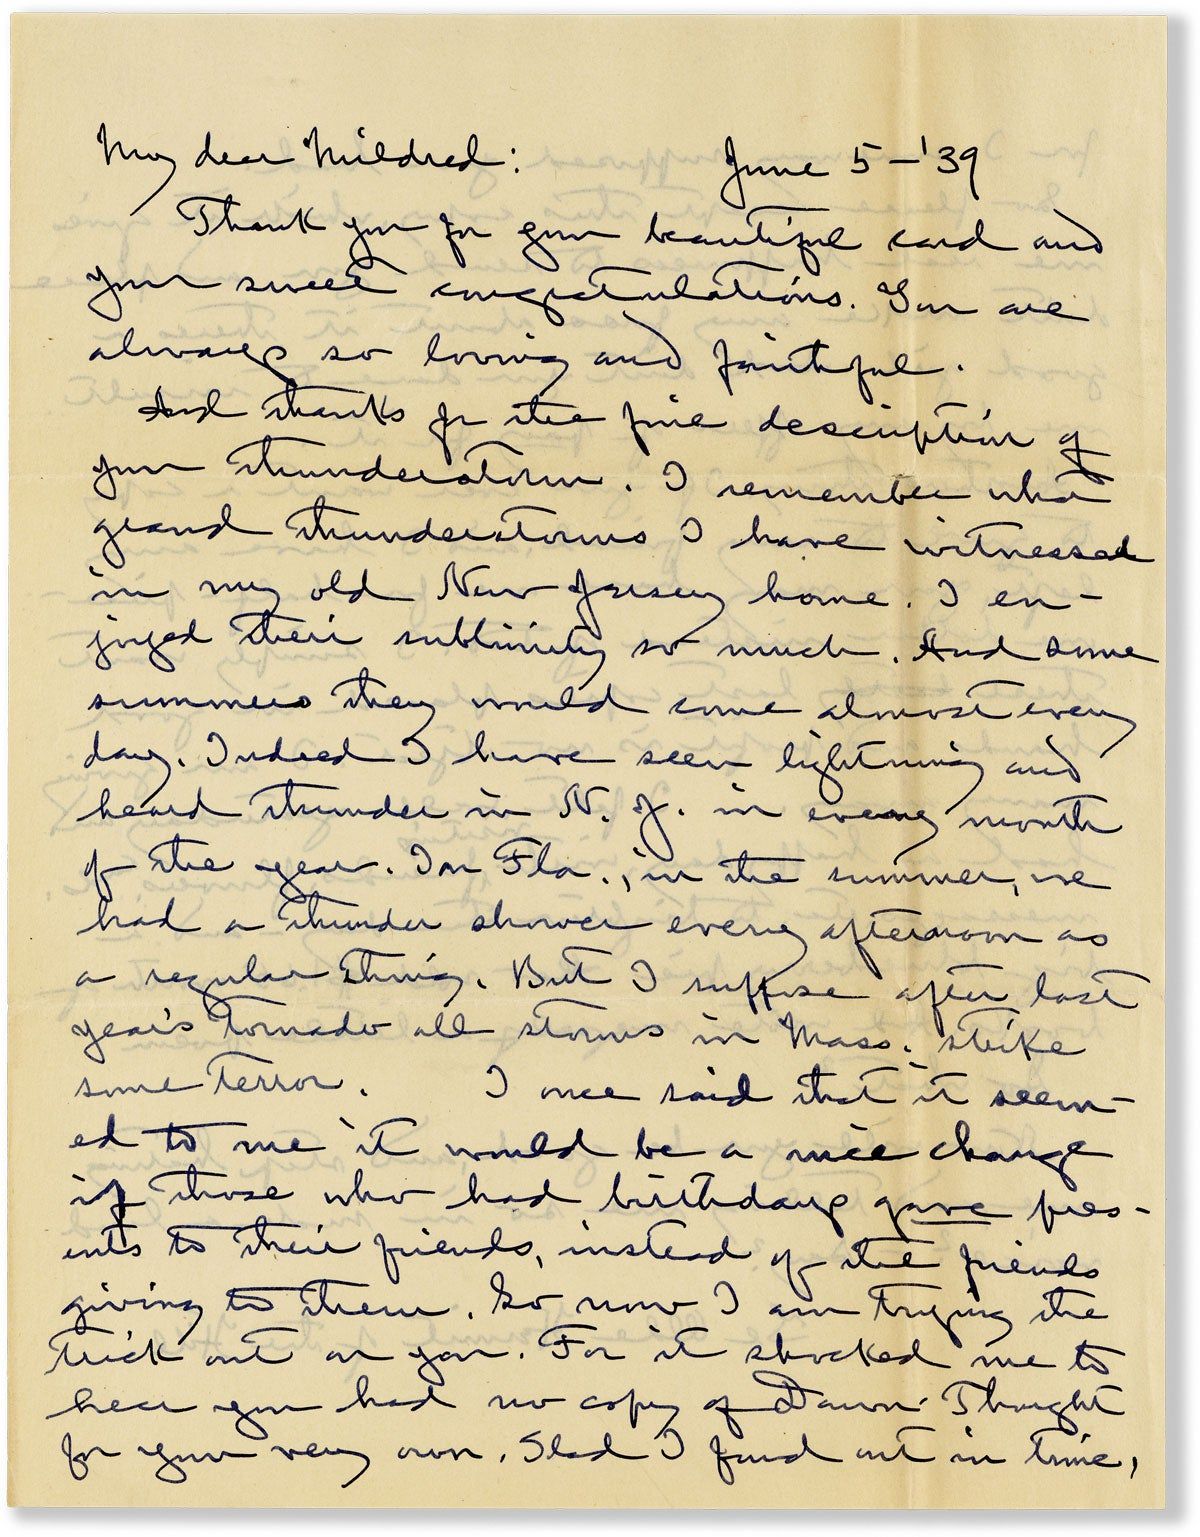 My dear Mildred: June 5 – '39
Thank you for your beautiful card and
your sweet congratulations. You are
always so loving and faithful.
And thanks for the fine description of
your thunderstorm. I remember what
grand thunderstorms I have witnessed
in my old New Jersey home. I en-
joyed their sublimity so much. And some
summers they would come almost every
day. Indeed I have seen lightning and
heard thunder in N. J. in every month
of the year. In Fla., in the summer, we
had a thunder shower every afternoon as
a regular thing. But I suppose after last
year's tornado all storms in Mass. strike
some terror. I once said that it seem-
ed to me it would be a nice change
if those who had birthdays gave pres-
ents to their friends, instead of the friends
giving to them. So now I am trying the
trick out on you. For it shocked me to
hear you had no copy of Dawn-Thought
for your very own. Glad I found out in time,